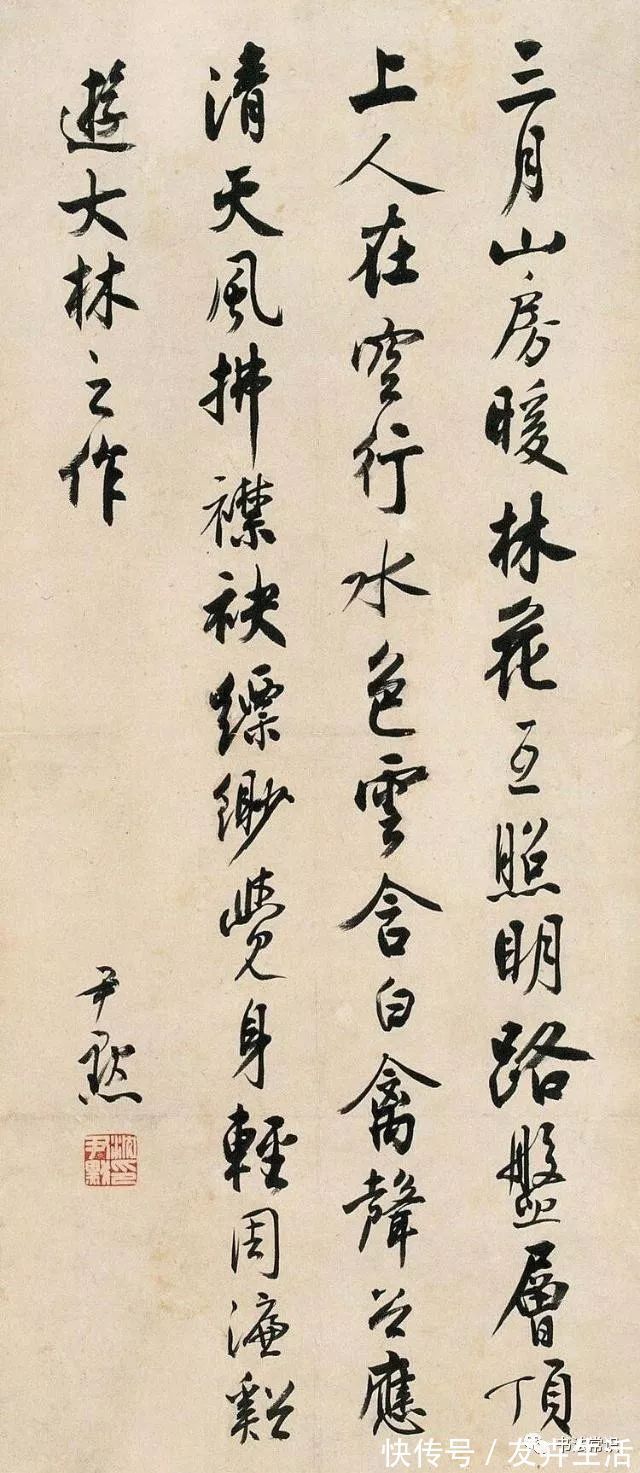 三月山房暖林花互照明路盤層頂
上人在空行水色雲含白禽聲谷應
清天風拂襟袂縹緲覺身輕周濂谿
遊大林之作
尹默
沈尹默印
书法常识
快传号/友卉生活